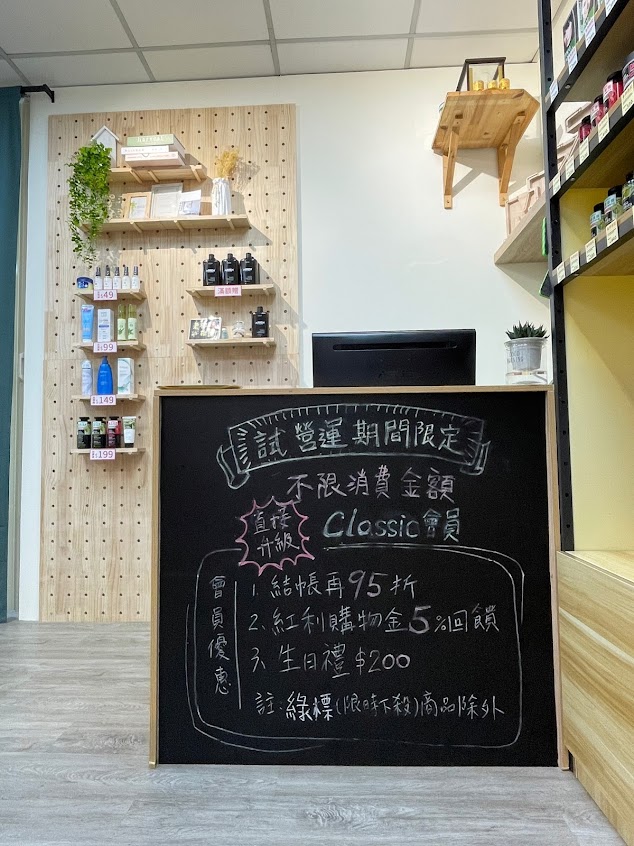 $49
$99
$149
$199
滿額禮
試營運期間限定
不限消費金額
直接
升級
Classic會員
會員優惠
1. 結帳再95折
2. 紅利購物金5%回饋
3. 生日禮$200
註:綠標(限時下殺)商品除外